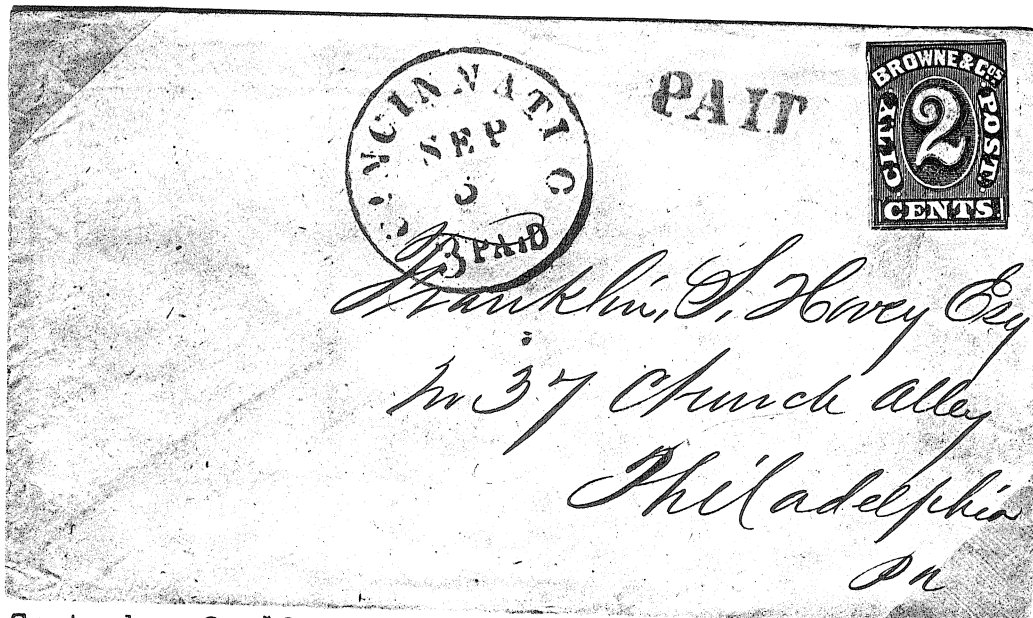 CINCINNATI O
SEP
3 PAID
PAID
BROWNE & Cos
CITY POST.
2
CENTS.
Franklin, S, Hovey Esq
No 37 Church Alley
Philadelphia
Pa